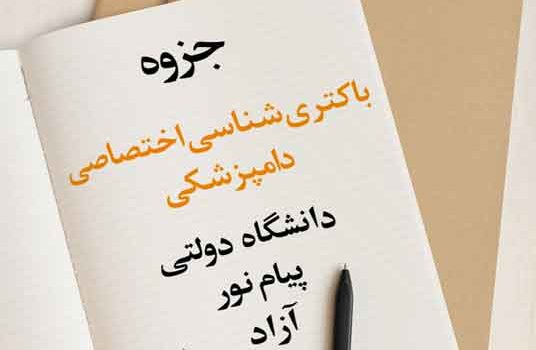 جزوه
باکتری شناسی اختصاصی
دامپزشکی
دانشگاه دولتی
پیام نور
آزاد